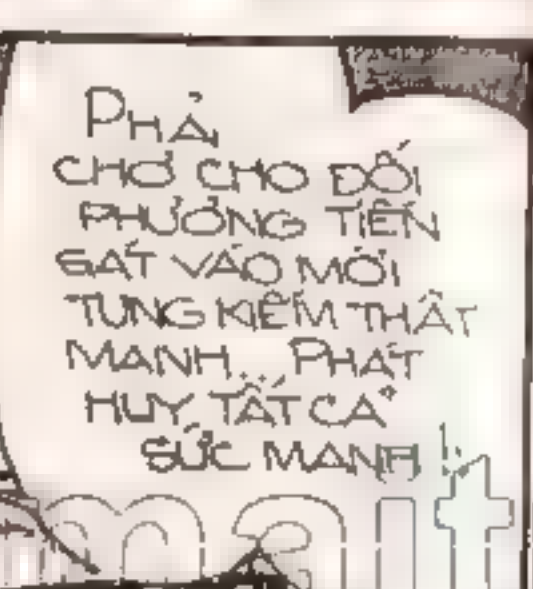 PHẢI
CHỜ CHO ĐỐI
PHƯƠNG TIẾN
SÁT VÀO MỚI
TUNG KIẾM THẬT
MẠNH... PHÁT
HUY TẤT CẢ
SỨC MẠNH!